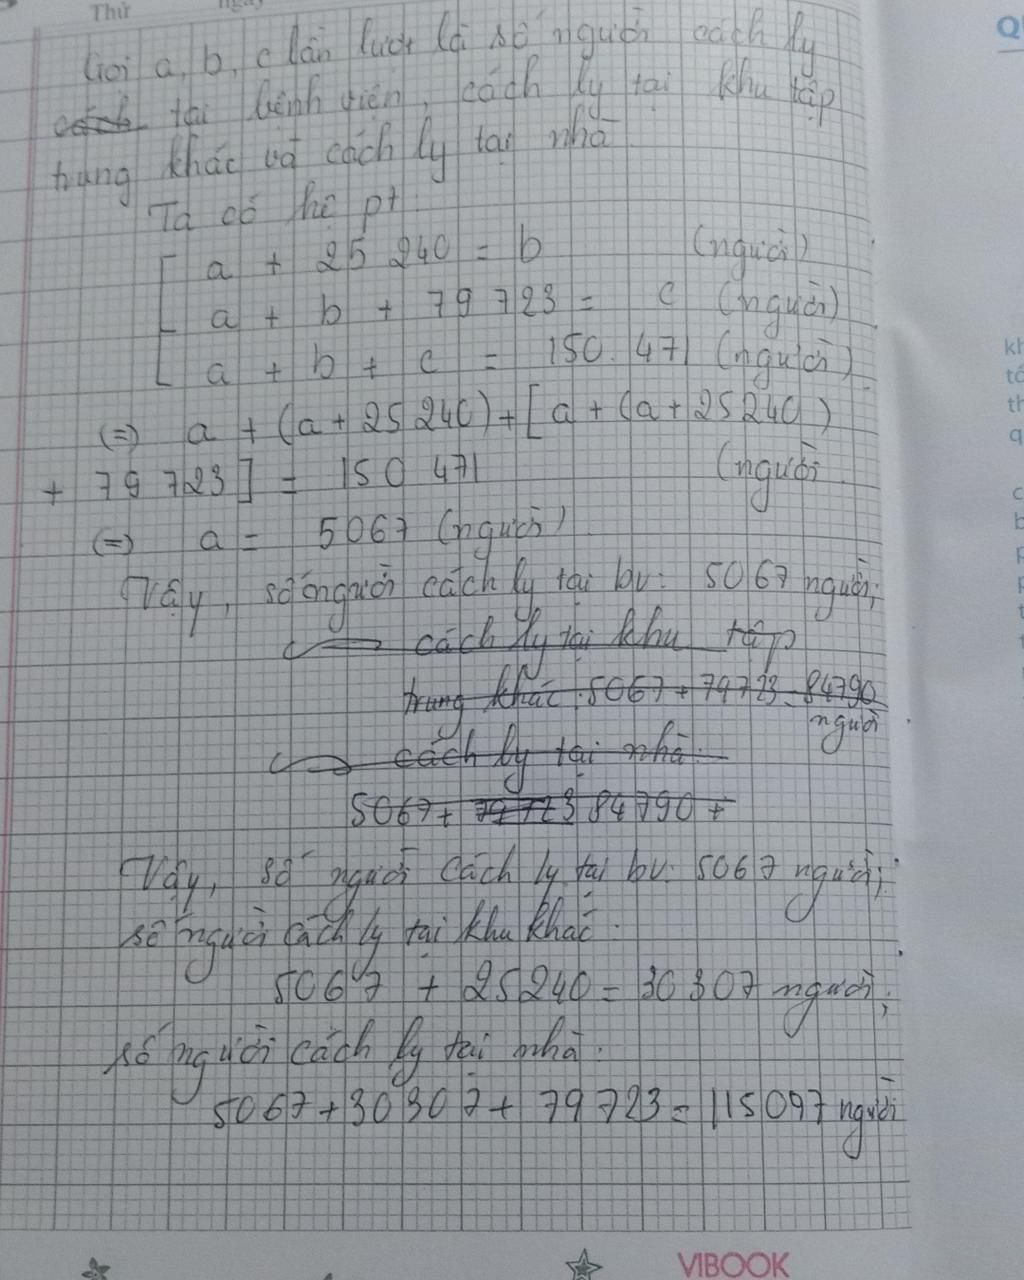 Thứ
ngày
Gọi a, b, c lần lượt là số người cách ly
cách tại bệnh viện, cách ly tại khu tập
trung khác và cách ly tại nhà
Ta có hệ pt
a + 25 240 = b (người)
a + b + 79 723 = c (người)
a + b + c = 150.471 (người)
(=) a + (a + 25 240) + [a + (a + 25 240)
+ 79 723] = 150 471 (người
(=) a = 5067 (người)
Vậy, số người cách ly tại bv: 5067 người;
cách ly tại khu tập
trung khác: 5067 + 79723 = 84790
người
cách ly tại nhà:
5067 + 79 723 84790 +
Vậy, số người cách ly tại bv: 5067 người;
số người cách ly tại khu khác:
5067 + 25240 = 30307 người;
số người cách ly tại nhà:
5067 + 30307 + 79723 = 115097 người
VIBOOK
Q
kh
tố
th
q
c
b
p
p
t